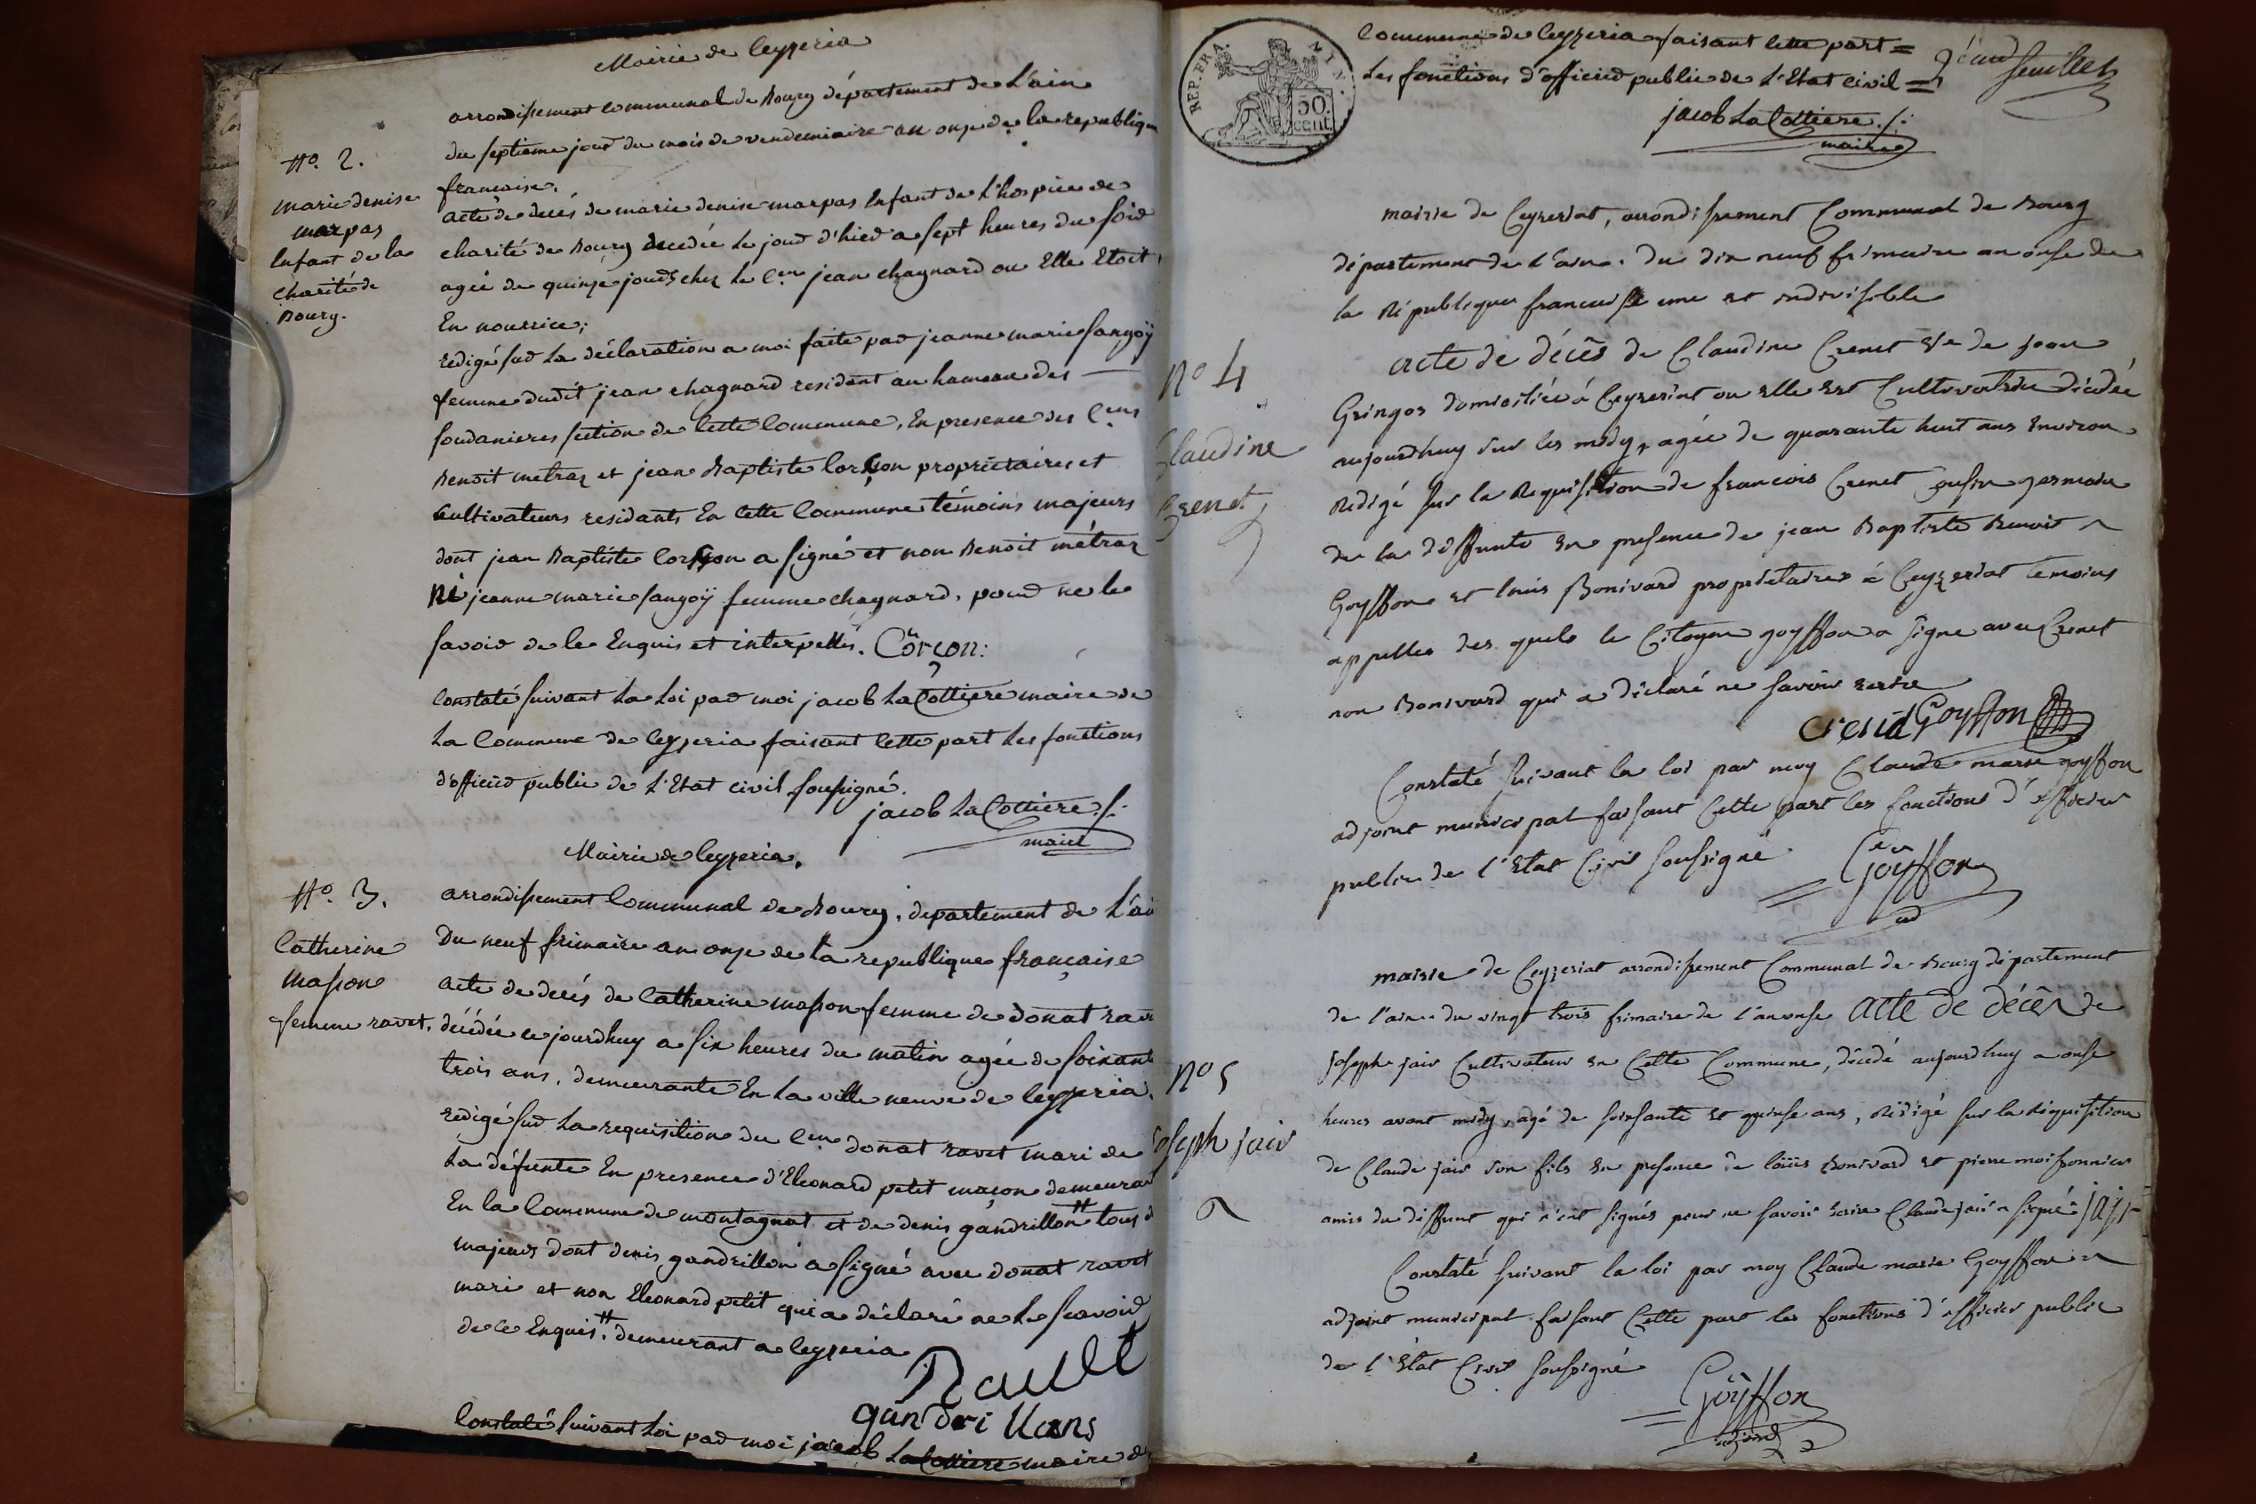 Mairie de Ceyzeria
arrondissement communal de Bourg département de L'ain
du septieme jour du mois de vendemiaire an onze de la republique
francaise.
N.o 2.
marie denise
marpas
Enfant de la
charité de
Bourg.
acte de decés de marie denise marpas Enfant de L'hospice de
charité de Bourg decedée le jour d'hier a sept heures du soir
agée de quinze jours chez le C.en jean chagnard ou Elle Etoit
En nourrice;
redigé sur La déclaration a moi faite par jeanne marie sangoÿ
femme dudit jean chagnard resident au hameau des
soudanieres section de Cette Commune, En presence des C.ens
Benoit metraz et jean Baptiste Corçon propriétaires et
Cultivateurs residants En Cette Commune témoins majeurs
dont jean Baptiste Corçon a signé et non Benoit métraz
Ni jeanne marie sangoÿ femme chagnard, pour ne le
savoir de le Enquis et interpellés. Corcon:
Constaté suivant La Loi par moi jacob LaCottiere maire de
La Commune de Ceyzeria faisant Cette part Les fonctions
d'officier public de L'Etat civil soussigné.
jacob LaCottiere
maire
Mairie de Ceyzeria.
N.o 3.
Catherine
masson
femme ravet.
arrondissement Communal de Bourg, departement de L'ai
Du neuf frimaire an onze de la republique française
acte de decés de Catherine masson femme de donat rav
décédée ce jourdhuy a six heures du matin agée de soixant
trois ans, demeurante En La ville neuve de Ceyzeria.
redigé sur La requisition du C.en donat ravet mari de
La défunte En presence d'Eleonard petit maçon demeuran
En la Commune de montagnat et de denis gandrillon tous d
majeurs dont denis gandrillon a signé avec donat ravet
mari et non Eleonard petit qui a déclaré ne Le scavoir
de ce Enquis. demeurant a Ceyzeria
Ravet
gandrillons
Constaté suivant Loi par moi jacob LaCottiere maire de
REP. FRA. 50 cent.
Commune de Ceyzeria faisant Cette part
Les fonctions d'officier public de L'Etat civil
feuillet
jacob LaCottiere
maire
mairie de Ceyzeriat, arrondissement Communal de Bourg
département de l'ain. du dix neuf frimaire an onse de
la République francaise une et indivisible
N.o 4
Claudine
Crenet
acte de décès de Claudine Crenet V.e de jean
Gringoz domiciliée à Ceyzeriat ou elle est Cultivatrice décédée
aujourdhuy sur les midy, agée de quarante huit ans environ
Rédigé sur la Requisition de francois Crenet Cousin germain
de la deffunte en presence de jean Baptiste Benoit
Goyffon et louis Bonivard propriétaires à Ceyzeriat temoins
appellés des quels le Citoyen goyffon a signé avec Crenet
non Bonivard qui a déclaré ne savoir ecrire
Crenet Goyffon
Constaté suivant la loi par moy Claude marie goyffon
adjoint municipal faisant Cette part les fonctions d'officier
public de l'Etat Civil soussigné
Goÿffon
ad
mairie de Ceyzeriat arrondissement Communal de Bourg département
de l'ain. du vingt trois frimaire de l'an onse acte de décès de
N.o 5
joseph jair
joseph jair Cultivateur en Cette Commune, décédé aujourdhuy a onse
heures avant midy, agé de soixante et quinse ans, Rédigé sur la Réquisition
de Claude jair son fils en presence de louis Bonivard et pierre moissonnier
amis du deffunt qui n'ont signés pour ne savoir ecrire Claude jair a signé
Constaté suivant la loi par moy Claude marie Goyffon
adjoint municipal faisant Cette part les fonctions d'officier public
de l'Etat Civil soussigné
Goÿffon
adjoint